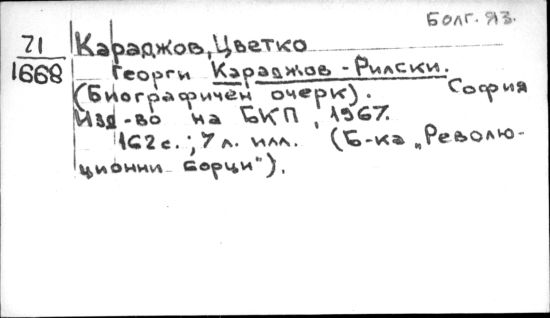 Болг. яз.
71
1668
Караджов, Цветко
Георги Караджов - Рилски.
(Биографичен очерк). София
Изд-во на БКП, 1967.
162 с.; 7 л. илл. (Б-ка „Револю-
ционни борци").